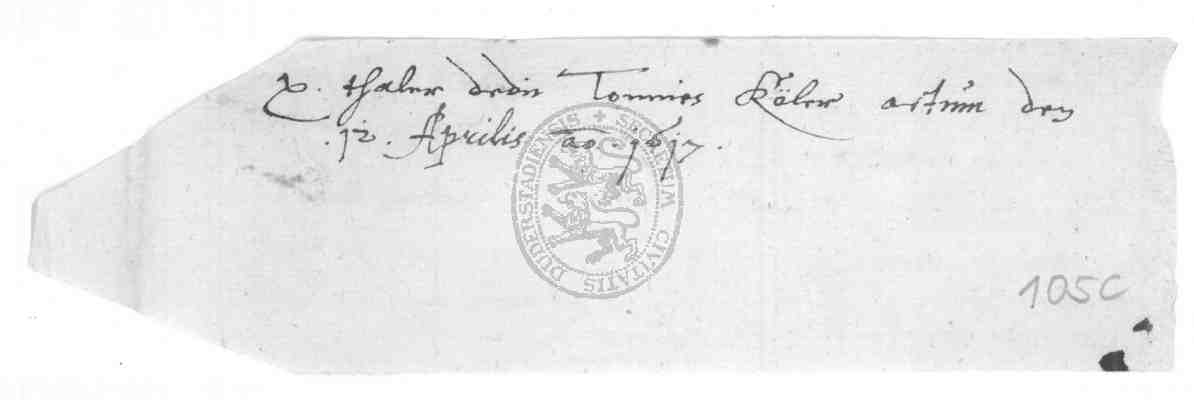 X. thaler dedit Tonnies Köler actum den
.12. Aprilis ao. 1617.
SECRETUM CIVITATIS DUDERSTADIENSIS
105C